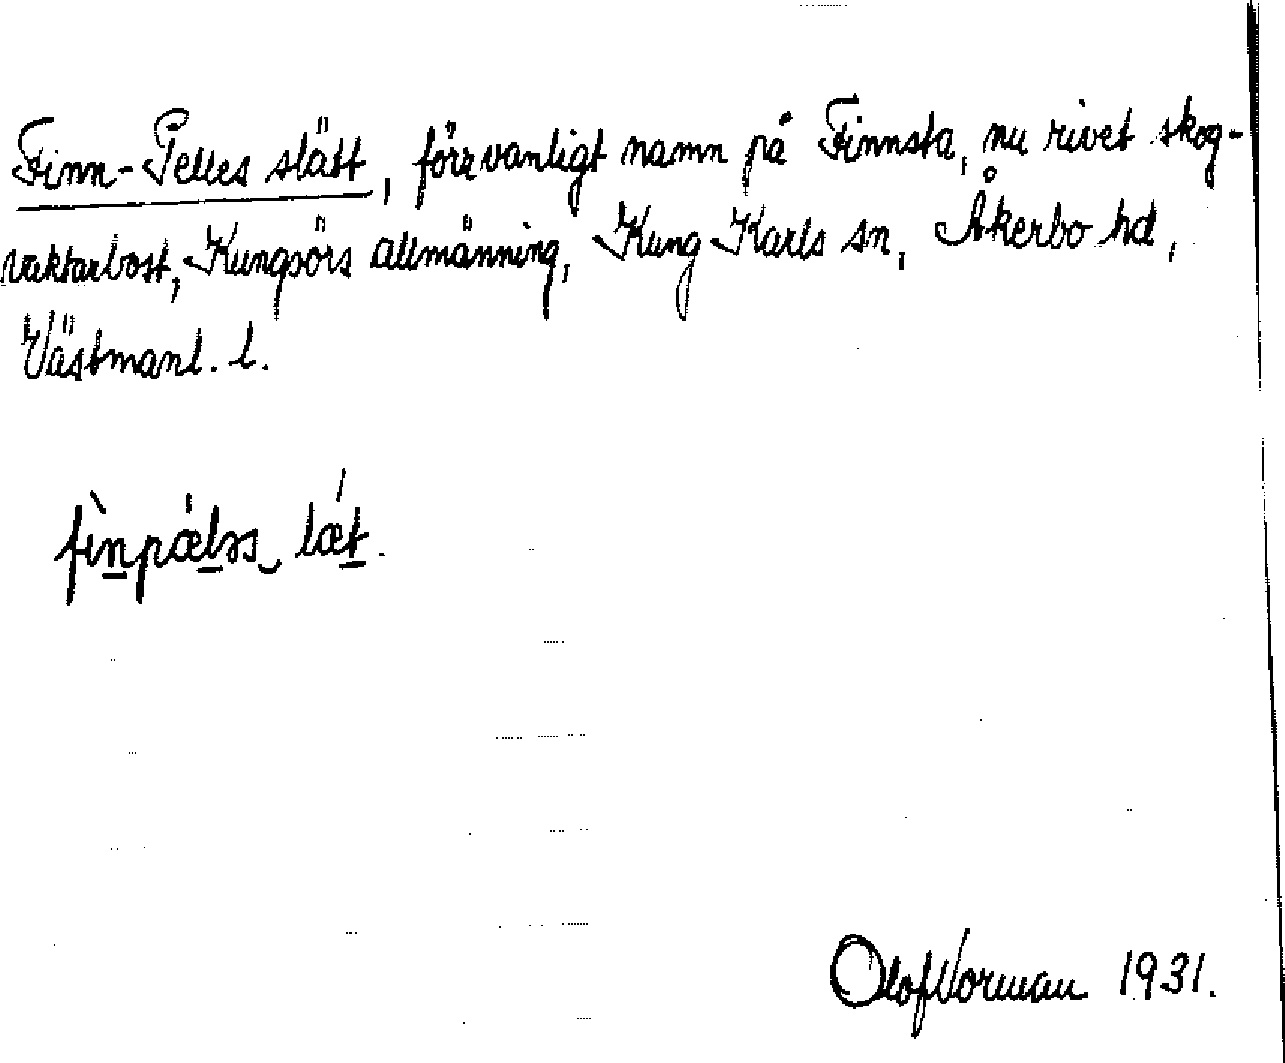 Finn-Pelles slätt, förr vanligt namn på Finnsta, nu rivet skog-
vaktarbost, Kungsörs allmänning, Kung Karls sn, Åkerbo hd,
Västmanl. l.
fìnpǽlǝs lǽt.
Olof Norman 1931.